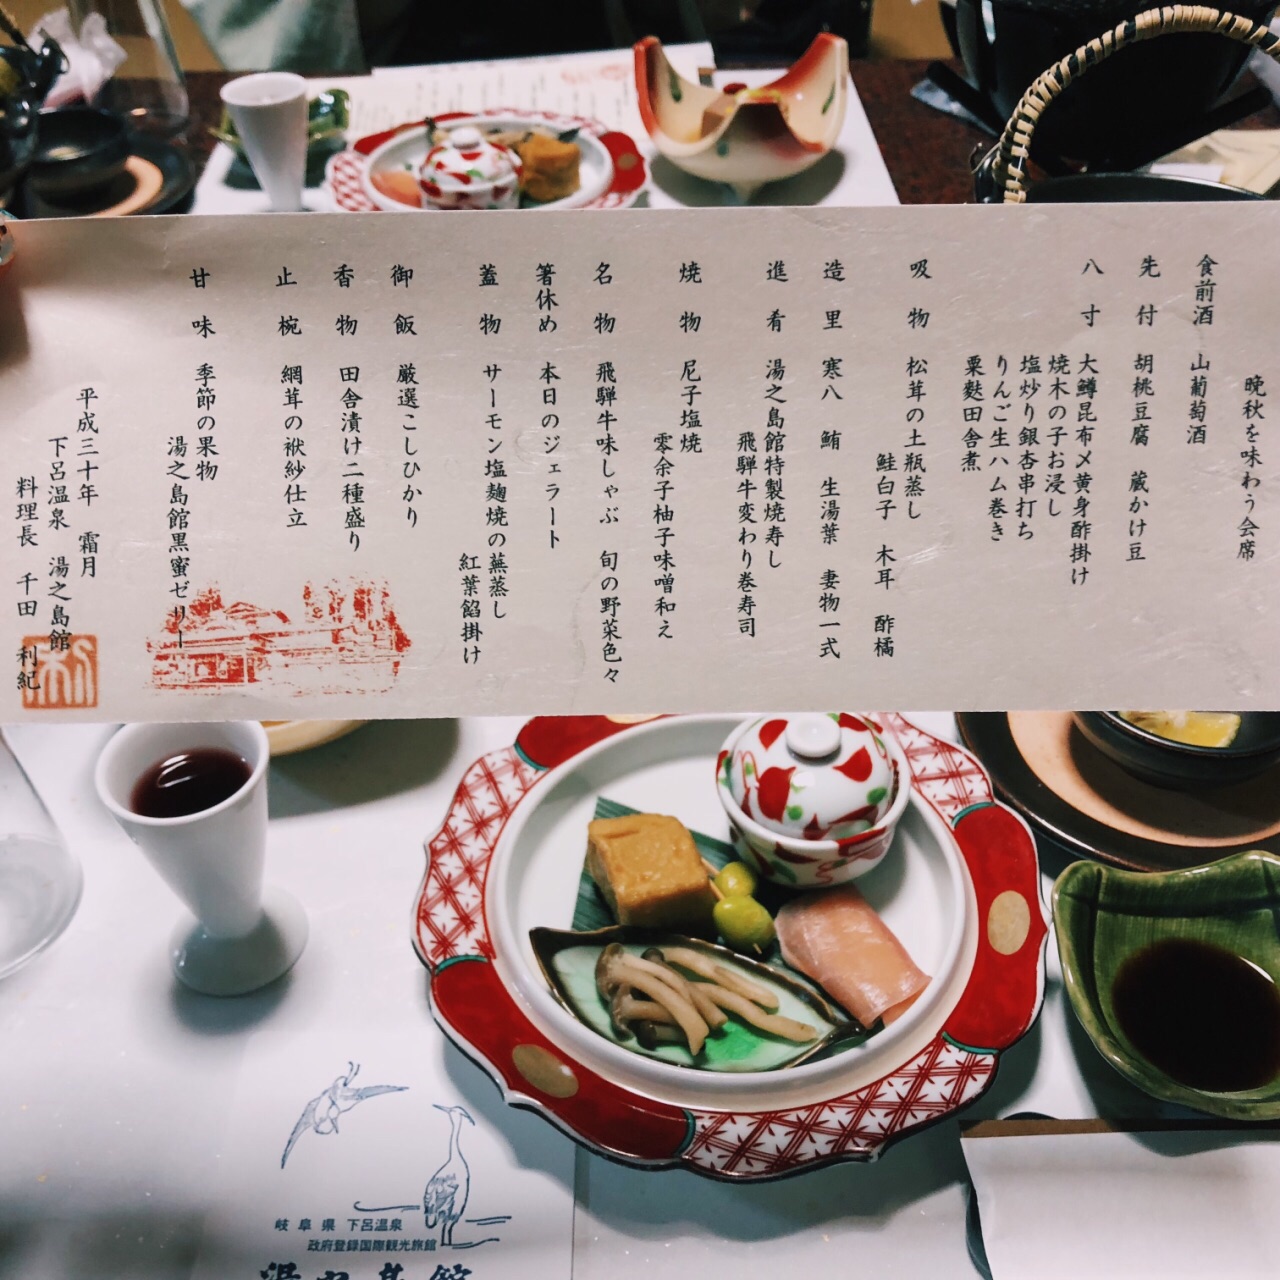 晩秋を味わう会席
食前酒 山葡萄酒
先付 胡桃豆腐 蔵かけ豆
八寸 大鱒昆布〆黄身酢掛け
焼木の子お浸し
塩炒り銀杏串打ち
りんご生ハム巻き
粟麩田舎煮
吸物 松茸の土瓶蒸し
鮭白子 木耳 酢橘
造里 寒八 鮪 生湯葉 妻物一式
進肴 湯之島館特製焼寿し
飛騨牛変わり巻寿司
焼物 尼子塩焼
零余子柚子味噌和え
名物 飛騨牛味しゃぶ 旬の野菜色々
箸休め 本日のジェラート
蓋物 サーモン塩麹焼の蕪蒸し
紅葉餡掛け
御飯 厳選こしひかり
香物 田舎漬け二種盛り
止椀 網茸の袱紗仕立
甘味 季節の果物
湯之島館黒蜜ゼリー
平成三十年 霜月
下呂温泉 湯之島館
料理長 千田 利紀
岐阜県 下呂温泉
政府登録国際観光旅館
湯之島館